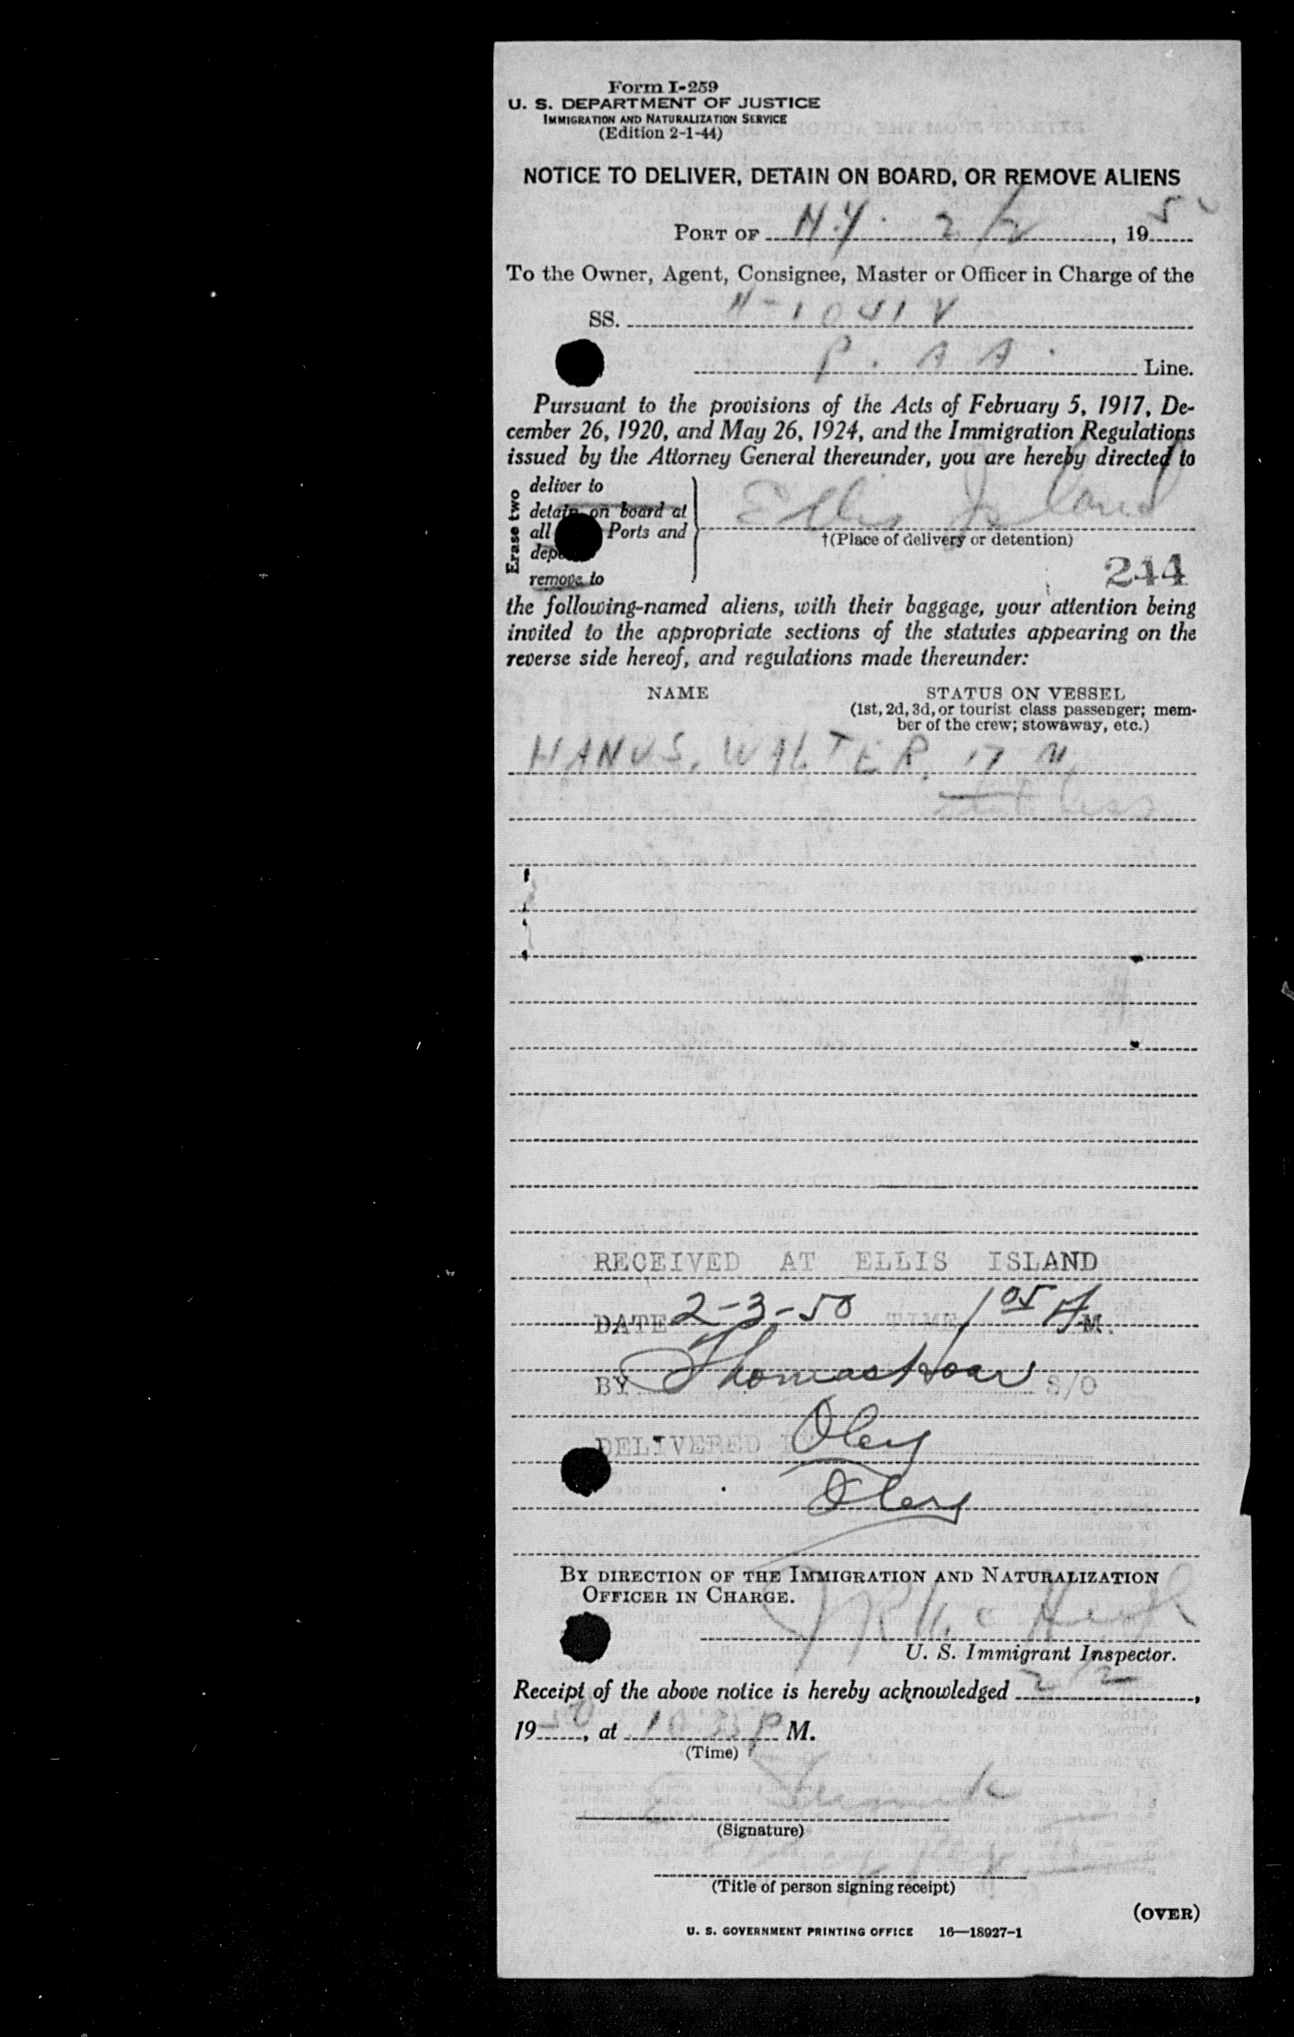 Form I-259
U. S. DEPARTMENT OF JUSTICE
IMMIGRATION AND NATURALIZATION SERVICE
(Edition 2-1-44)
NOTICE TO DELIVER, DETAIN ON BOARD, OR REMOVE ALIENS
PORT OF N.Y. 2/2, 195
To the Owner, Agent, Consignee, Master or Officer in Charge of the
SS. N-1041V
P.AA. Line.
Pursuant to the provisions of the Acts of February 5, 1917, De-
cember 26, 1920, and May 26, 1924, and the Immigration Regulations
issued by the Attorney General thereunder, you are hereby directed to
Erase two
deliver to
detain on board at
all Ports and
remove to
Ellis Island
†(Place of delivery or detention)
244
the following-named aliens, with their baggage, your attention being
invited to the appropriate sections of the statutes appearing on the
reverse side hereof, and regulations made thereunder:
NAME STATUS ON VESSEL
(1st, 2d, 3d, or tourist class passenger; mem-
ber of the crew; stowaway, etc.)
HANUS, WALTER, 17 M
stateless
RECEIVED AT ELLIS ISLAND
DATE 2-3-50 TIME 1 05 A M.
BY Thomas Hoar S/O
DELIVERED BY Oley
Oley
BY DIRECTION OF THE IMMIGRATION AND NATURALIZATION
OFFICER IN CHARGE.
J R McHugh
U. S. Immigrant Inspector.
Receipt of the above notice is hereby acknowledged 2/2,
1950, at P M.
(Time)
(Signature)
(Title of person signing receipt)
(OVER)
U. S. GOVERNMENT PRINTING OFFICE 16—18927-1